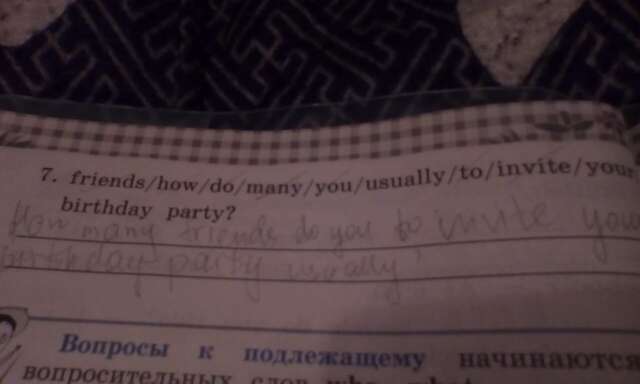 7. friends/how/do/many/you/usually/to/invite/your
birthday party?
How many friends do you to invite you
birthday party usually
Вопросы к подлежащему начинаются
вопросительных слов